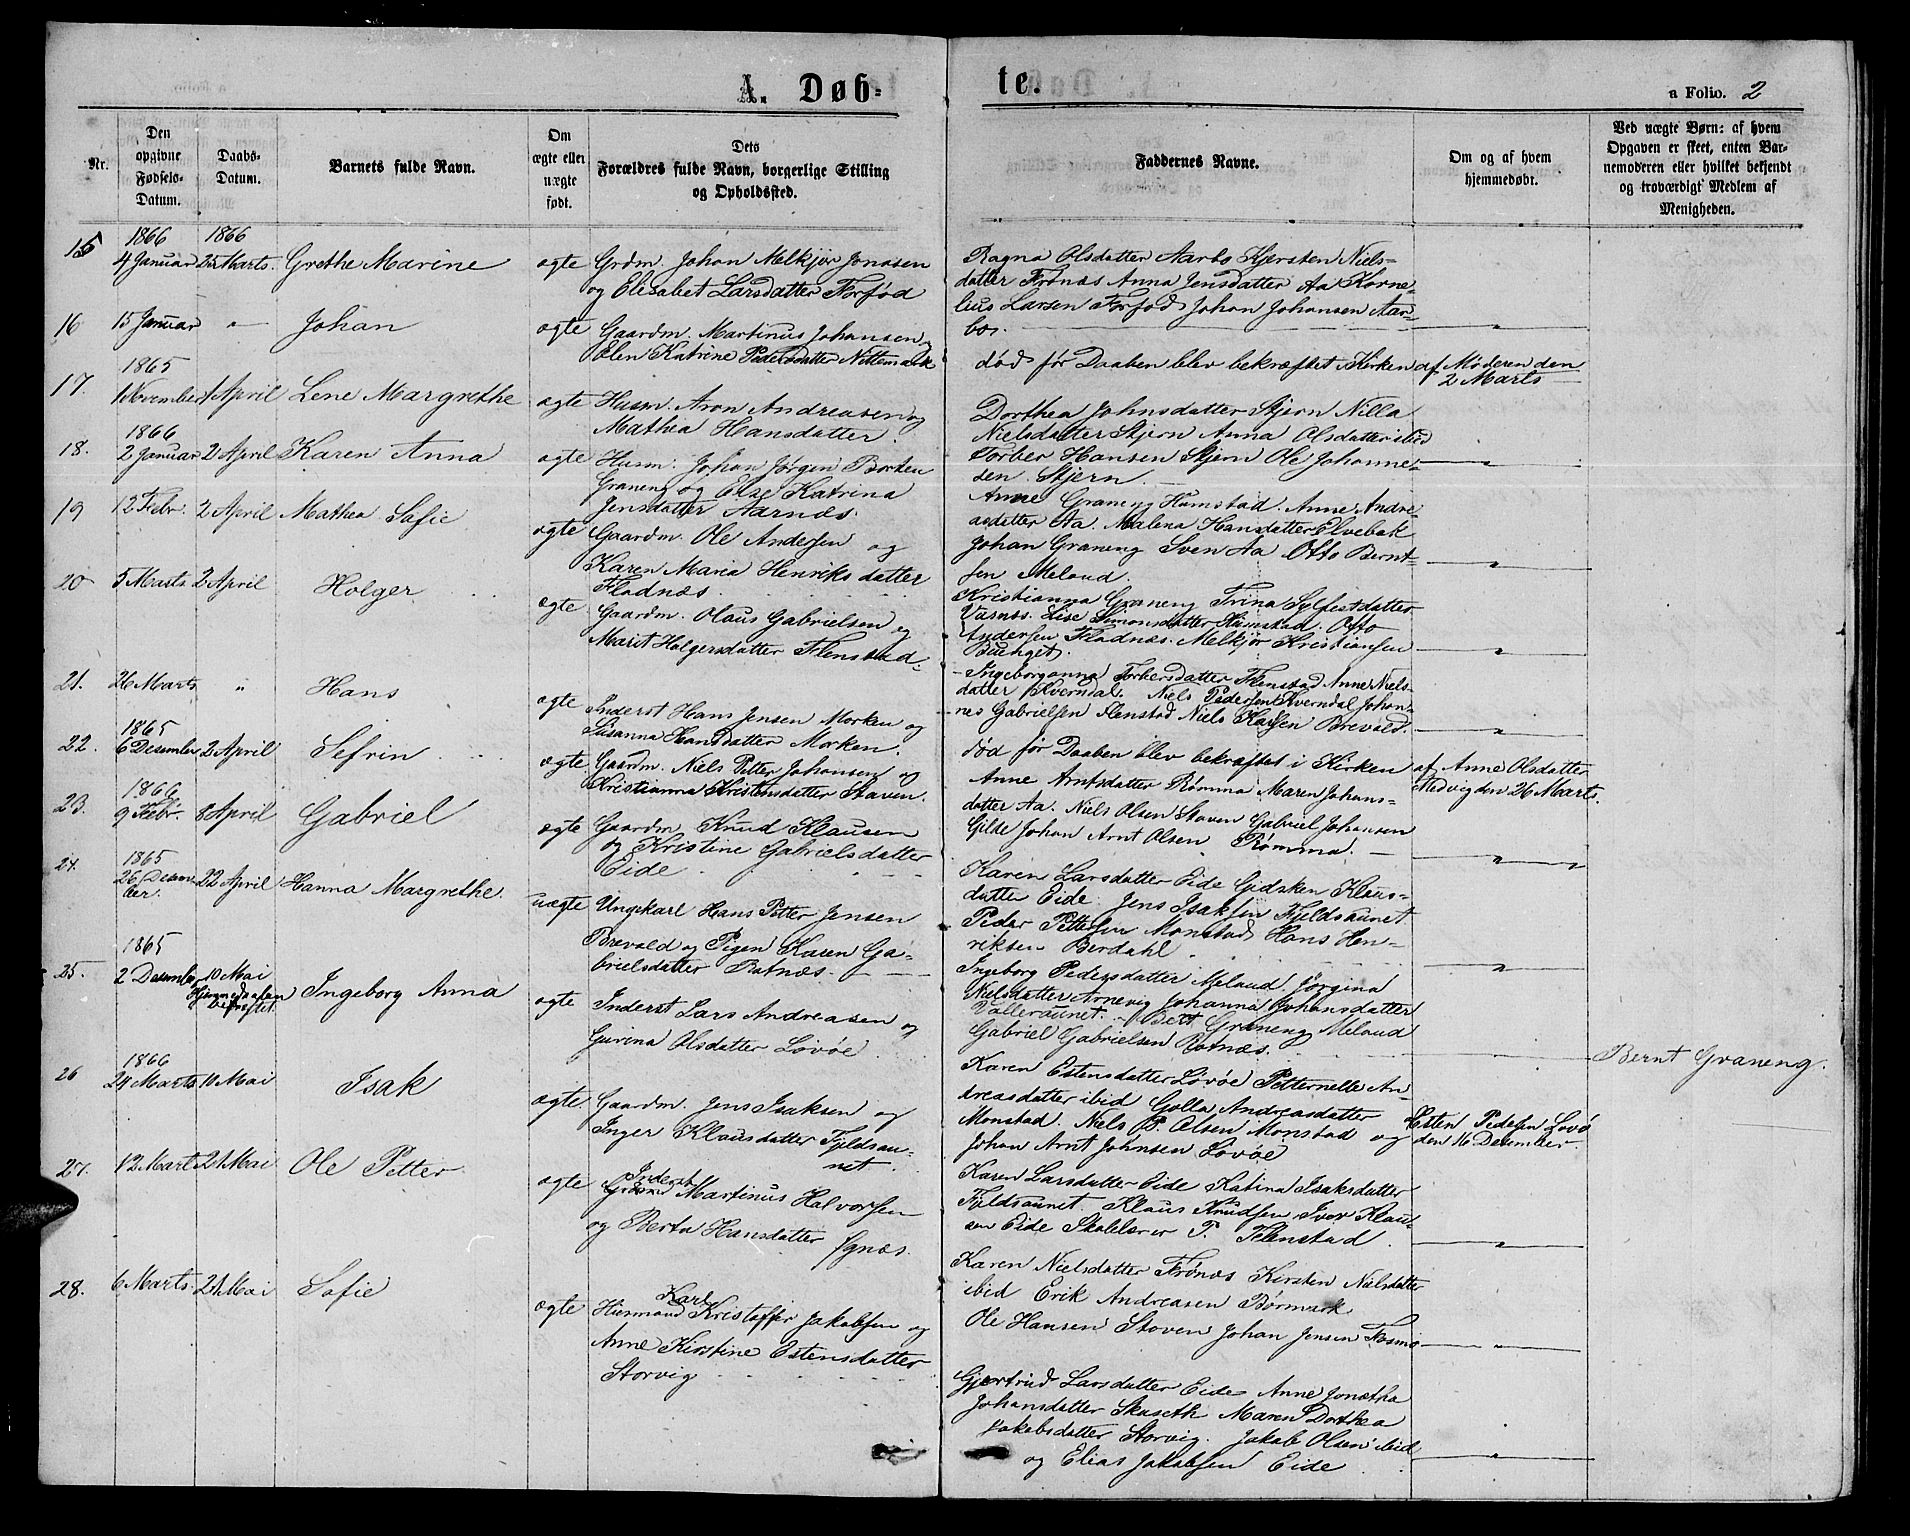 A. Døb-
te.
a Folio. 2
Nr.
Den opgivne Fødsels-Datum.
Daabs-Datum.
Barnets fulde Navn.
Om ægte eller uægte født.
Dets Forældres fulde Navn, borgerlige Stilling og Opholdssted.
Faddernes Navne.
Om og af hvem hjemmedøbt.
Ved uægte Børn: af hvem Opgaven er skeet, enten Barnemoderen eller hvilket bekjendt og troværdigt Medlem af Menigheden.
1866 1866
15 4 Januar 25 Marts. Grethe Marine ægte Grdm. Johan Melkjør Jonasen
og Elisabet Larsdatter Forfød
Ragna Olsdatter Aarbo Kjersten Niels-
datter Frønæs Anna Jensdatter Aa Korne-
lius Larsen Forfød Johan Johansen Aar-
bo.
16 15 Januar " Johan ægte Gaardm. Martinus Johansen og
Elen Katrine Pedersdatter Nittemark
død før Daaben blev bekræftet i Kirken af Møderen den
2 Marts
1865
17. 1 November 1 April Lene Margrethe ægte Husm. Aron Andreasen og
Mathea Hansdatter.
Dorthea Johnsdatter Skjern Nilla
Nielsdatter Skjern Anna Olsdatter ibid
Torber Hansen Skjern Ole Johanne-
sen Skjern.
1866
18. 2 Januar 2 April Karen Anna ægte Husm. Johan Jørgen Borten
Graneng og Else Katrina
Jensdatter Aarnæs.
Anne Graneng Humstad. Anne Andre-
asdatter Aa. Malena Hansdatter Elvebak
Johan Graneng Sven Aa Otto Bernt-
sen Meland.
19 12 Febr. 2 April Mathea Sofie ægte Gaardm. Ole Andersen og
Karen Maria Henriksdatter
Fladnæs.
Kristianna Graneng Trina Sylfestdatter
Vasnæs. Lise Simonsdatter Humstad. Otto
Andersen Fladnæs. Melkjør Kristiansen
20 5 Marts 2 April Holger ægte Gaardm. Olaus Gabrielsen og
Marit Holgersdatter Flenstad.
Ingeborganna Torbersdatter Flenstad Anne Niels-
datter Kverndal. Niels Pedersen Kverndal Johan-
nes Gabrielsen Flenstad Niels Brevold.
21. 26 Marts " Hans ægte Inderst Hans Jensen Morken og
Susanna Hansdatter Morken.
død før Daaben blev bekræftet i Kirken af Anne Olsdatter
Medvig den 26 Marts.
1865
22. 6 Desember 2 April Sefrin ægte Gaardm. Niels Petter Johansen og
Kristianna Kristensdatter Staven.
Anne Arntsdatter Rømma Maren Johans-
datter Aa. Niels Olsen Staven Gabriel Johansen
Gilde Johan Arnt Olsen Rømma.
1866
23. 9 Febr. 8 April Gabriel ægte Gaardm. Knud Klausen
og Kristine Gabrielsdatter
Eide
Karen Larsdatter Eide Gidsken Klaus-
datter Eide. Jens Isaksen Fjeldsaunet
Peder Pettersen Monstad Hans Hen-
riksen Berdahl
1865
24. 26 Desem-
ber. 22 April Hanna Margrethe. uægte Ungekarl Hans Petter Jensen
Brevold og Pigen Karen Ga-
brielsdatter Botnæs.
Ingeborg Pedersdatter Meland. Jørgina
Nielsdatter Arnevig Johanna Johansdatter
Valleraunet. Bert Graneng Meland
Gabriel Gabrielsen Botnæs.
Bernt Graneng.
1865
25. 2 Desember 10 Mai
Hjemmedaaben
bekræftet. Ingeborg Anna ægte Inderst Lars Andreasen og
Gurina Olsdatter Lovøe
Karen Estensdatter Lovøe Petternelle An-
dreasdatter ibid Golla Andreasdatter
Monstad. Niels P. Olsen Monstad og
Johan Arnt Johnsen Lovøe
Esten Pedersen Lovø
den 16 Desember.
1866
26 24 Marts 10 Mai Isak ægte. Gaardm. Jens Isaksen og
Inger Klausdatter Fjeldsau-
net.
Karen Larsdatter Eide Katrina Isaksdatter
Fjeldsaunet. Klaus Knudsen Iver Klau
sen Eide Skolelærer P. Flenstad.
27. 12 Marts 21 Mai Ole Petter ægte Inderst Martinus Halvorsen
og Berta Hansdatter Ignæs.
Karen Nielsdatter Frønæs Kirsten Nielsdatter
ibid Erik Andreasen Børmark
Ole Hansen Stoven Johan Jensen Fosmo
28. 6 Marts. 21 Mai Sofie ægte Kari Kristoffer Jakobsen og
Anne Kirstine Estensdatter
Storvig
Gjertrud Larsdatter Eide Anne Jonetha
Johansdatter Skaseth Maren Dorthea
Jakobsdatter Storvig. Jakob Olsen ibid
og Elias Jakobsen Eide